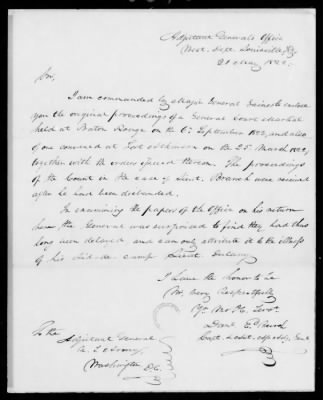 Adjutant Generals Office
West. Dept. Louisville, Ky.
21 May 1823.
Sir,
I am commanded by Major General Gaines to enclose
you the original proceedings of a General Court Martial
held at Baton Rouge on the 6th September 1822, and also
of one convened at Fort Atkinson on the 25 March 1823,
together with the orders issued thereon. The proceedings
of the Court in the case of Lieut. Branch were received
after he had been disbanded.
In examining the papers of the Office on his return
here the General was surprised to find they had thus
long been delayed and can only attribute it to the illness
of his Aid-de-camp Lieut. Delany.
I have the honor to be
Sir, very Respectfully
Yr. Mo. Ob. Servt.
Danl. E.
Capt. & Act. Asst. Adjt. Genl.
To the
Adjutant General
U. S. Army
Washington D.C.